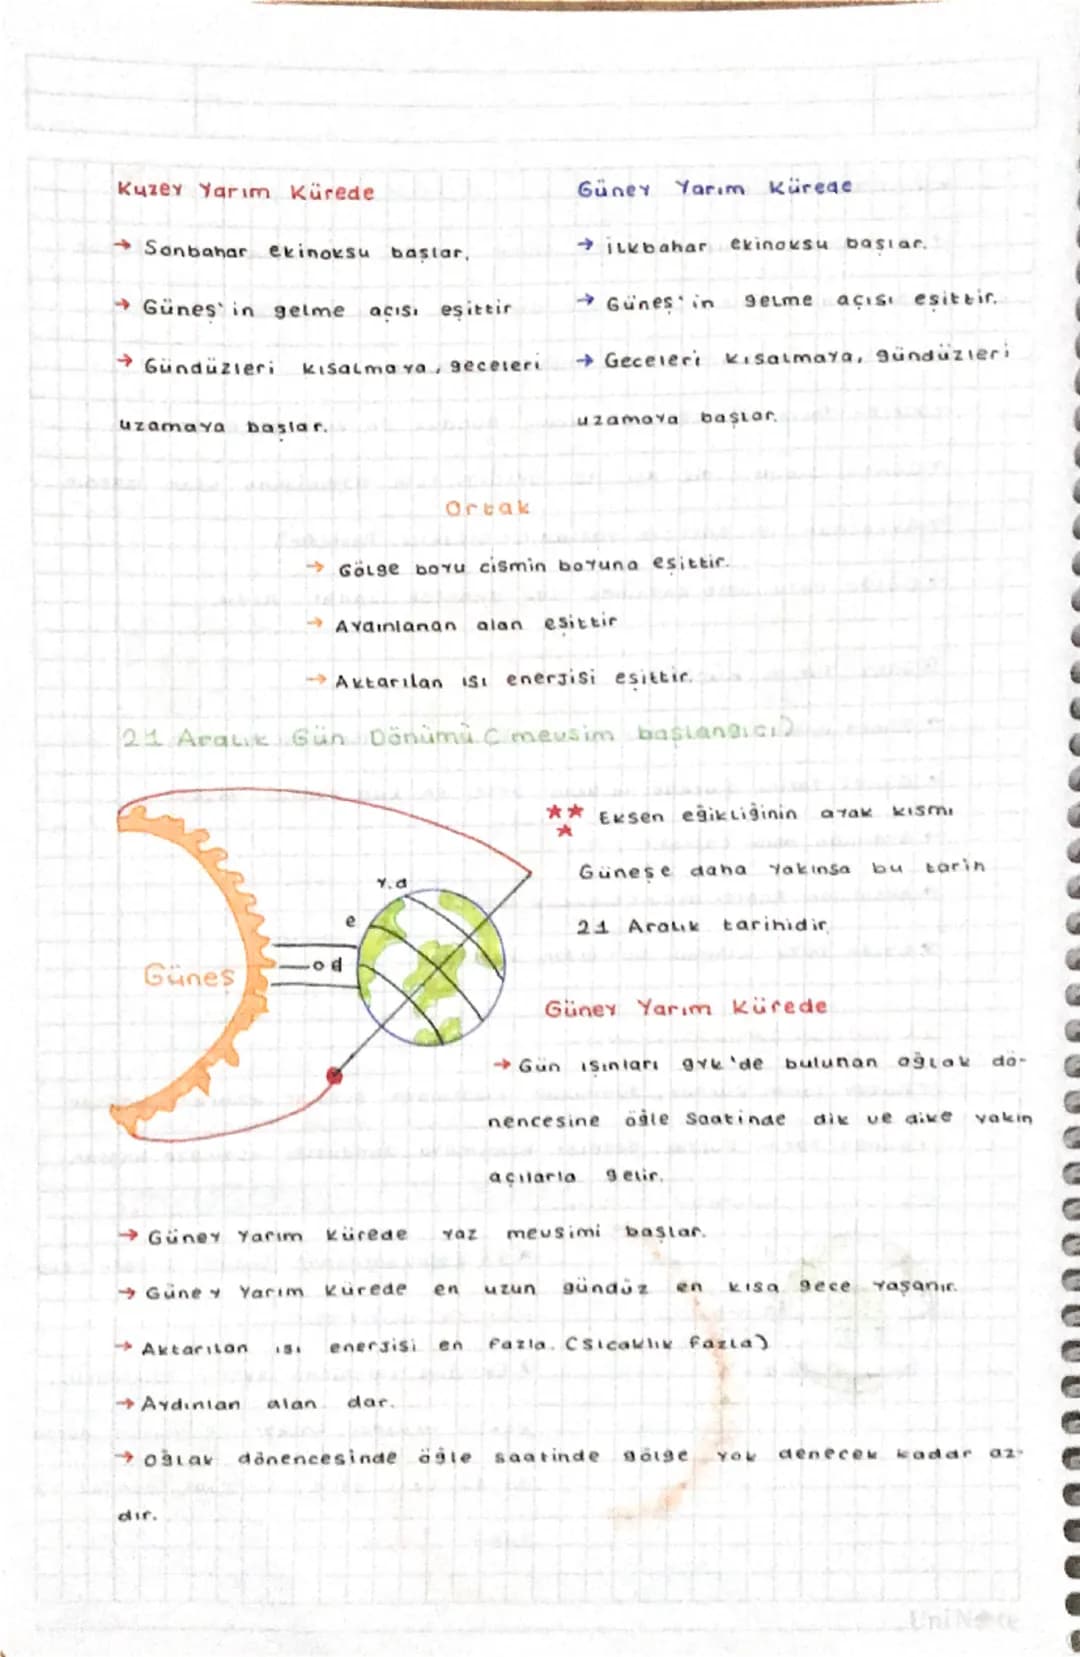 Kuzey Yarım Kürede
→ Sonbahar ekinoksu başlar.
→ Güneş'in gelme açısı eşittir
→ Gündüzleri kısalmaya, geceleri
uzamaya başlar.
Güney Yarım Kürede
→ İlkbahar ekinoksu başlar.
→ Güneş'in gelme açısı eşittir.
→ Geceleri kısalmaya, gündüzleri
uzamaya başlar.
Ortak
→ Gölge boyu cismin boyuna eşittir.
→ Aydınlanan alan eşittir
→ Aktarılan ısı enerjisi eşittir.
21 Aralık Gün Dönümü (mevsim başlangıcı)
Güneş
y.d
e
od
** Eksen eğikliğinin ayak kısmı
*
Güneşe daha yakınsa bu tarih
21 Aralık tarihidir.
Güney Yarım Kürede
→ Gün ışınları gyk'de bulunan oğlak dö-
nencesine öğle saatinde dik ve dike yakın
açılarla gelir.
→ Güney Yarım Kürede yaz mevsimi başlar.
→ Güney Yarım Kürede en uzun gündüz en kısa gece yaşanır.
→ Aktarılan ısı enerjisi en fazla. (Sıcaklık fazla)
→ Aydınlan alan dar.
→ Oğlak dönencesinde öğle saatinde gölge yok denecek kadar az-
dır.
UniNote